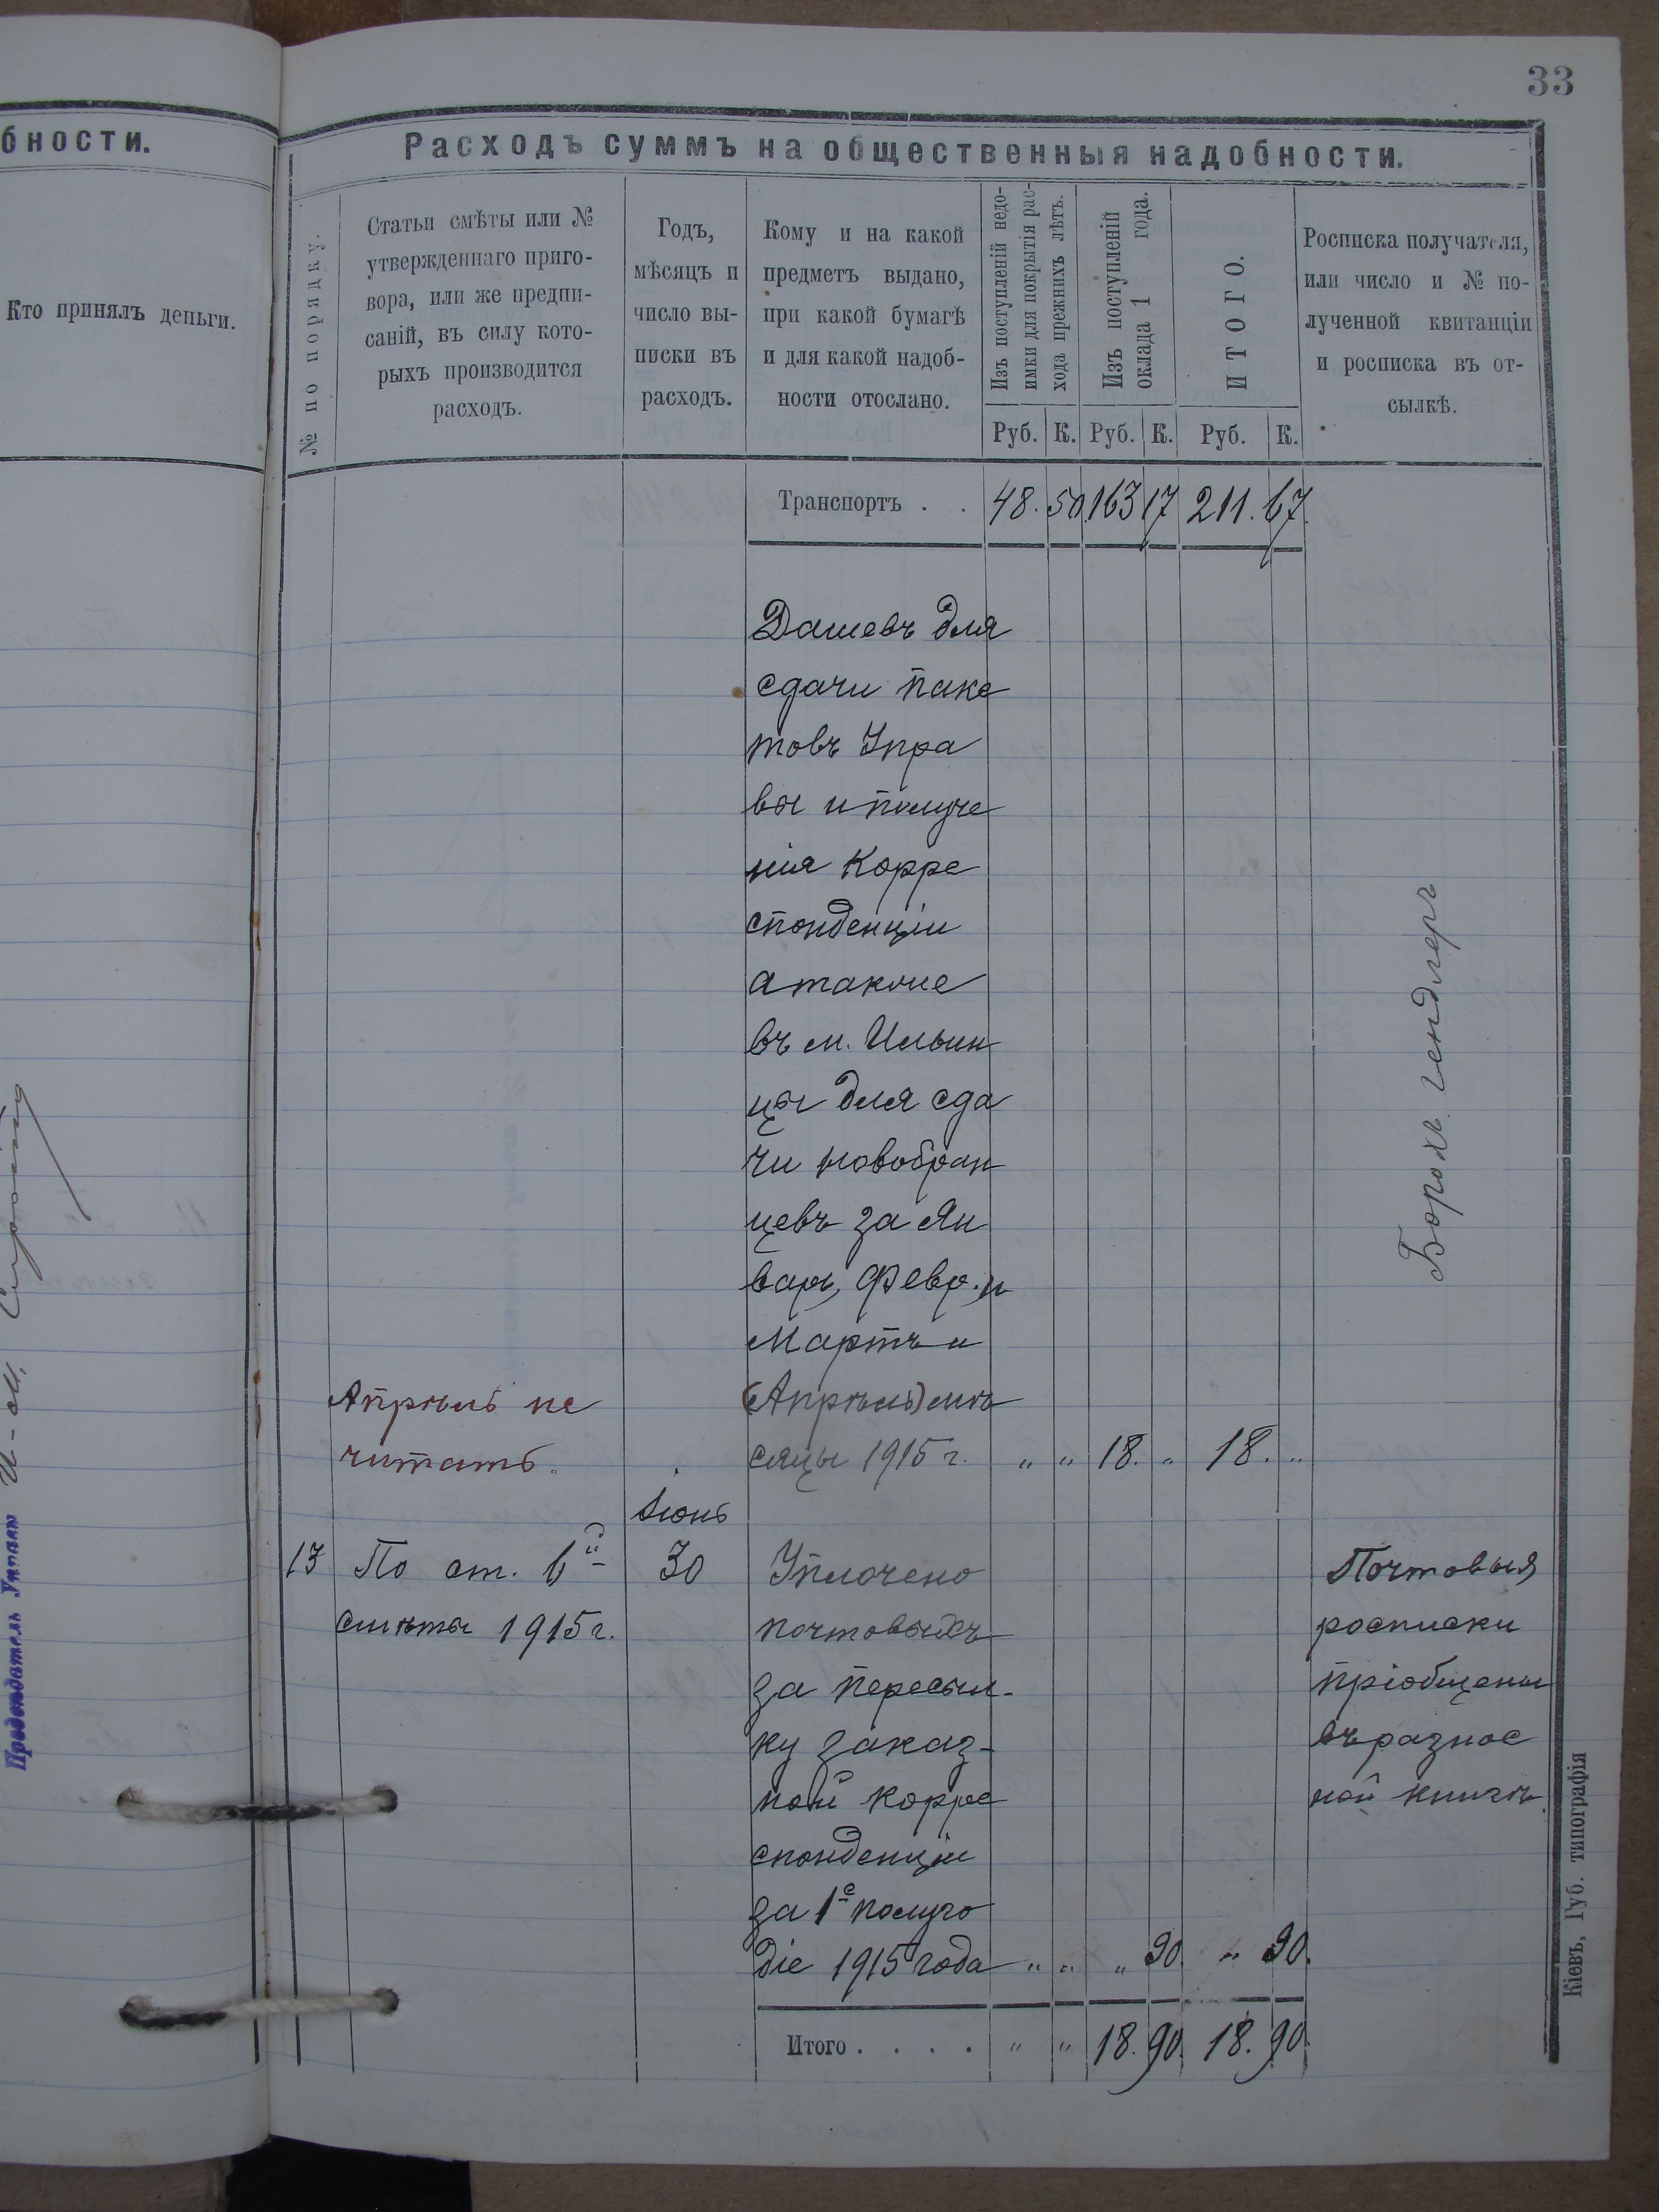 33
бности.
Кто принялъ деньги.
Предсѣдатель Управы
Расходъ суммъ на общественныя надобности.
№ по порядку.
Статьи смѣты или №
утвержденнаго приго-
вора, или же предпи-
саній, въ силу кото-
рыхъ производится
расходъ.
Годъ,
мѣсяцъ и
число вы-
писки въ
расходъ.
Кому и на какой
предметъ выдано,
при какой бумагѣ
и для какой надоб-
ности отослано.
Изъ поступленій недо-
имки для покрытія рас-
хода прежнихъ лѣтъ.
Изъ поступленій
оклада 1 года.
ИТОГО.
Росписка получателя,
или число и № по-
лученной квитанціи
и росписка въ от-
сылкѣ.
Руб. К. Руб. К. Руб. К.
Транспортъ . . 48. 50 163 17 211. 67.
Дашевъ для
сдачи паке
товъ Упра
вы и получе
нія Корре
спонденціи
а также
въ м. Ильин
цы для сда
чи новобран
цевъ за Ян
варь, Февр. и
Мартъ и
(Апрѣль) мѣ
сяцы 1915 г. „ „ 18. „ 18. „
Апрѣль не
читать.
Борохъ Гендлеръ
Іюнь
13 По ст. 6й 30 Уплочено
смѣты 1915 г. почтовыхъ
за пересыл-
ку заказ-
ной корре
спонденціи
за 1е полуго
діе 1915 года „ „ „ 90. „ 90.
Почтовыя
росписки
пріобщены
въ разнос
ной книгѣ.
Итого . . . . „ „ 18. 90. 18. 90.
Кіевъ, Губ. типографія